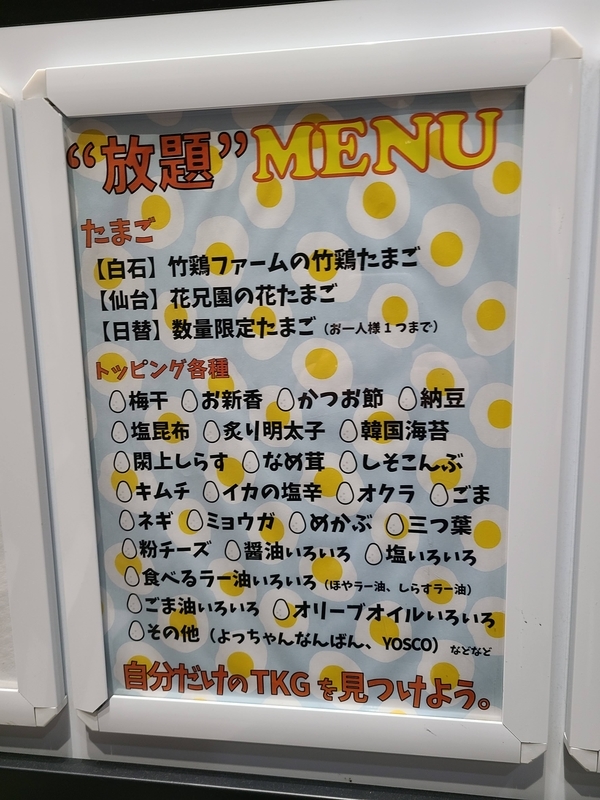 “放題”MENU
たまご
【白石】竹鶏ファームの竹鶏たまご
【仙台】花兄園の花たまご
【日替】数量限定たまご（お一人様１つまで）
トッピング各種
梅干 お新香 かつお節 納豆
塩昆布 炙り明太子 韓国海苔
閖上しらす なめ茸 しそこんぶ
キムチ イカの塩辛 オクラ ごま
ネギ ミョウガ めかぶ 三つ葉
粉チーズ 醤油いろいろ 塩いろいろ
食べるラー油いろいろ（ほやラー油、しらすラー油）
ごま油いろいろ オリーブオイルいろいろ
その他（よっちゃんなんばん、YOSCO）などなど
自分だけのTKGを見つけよう。